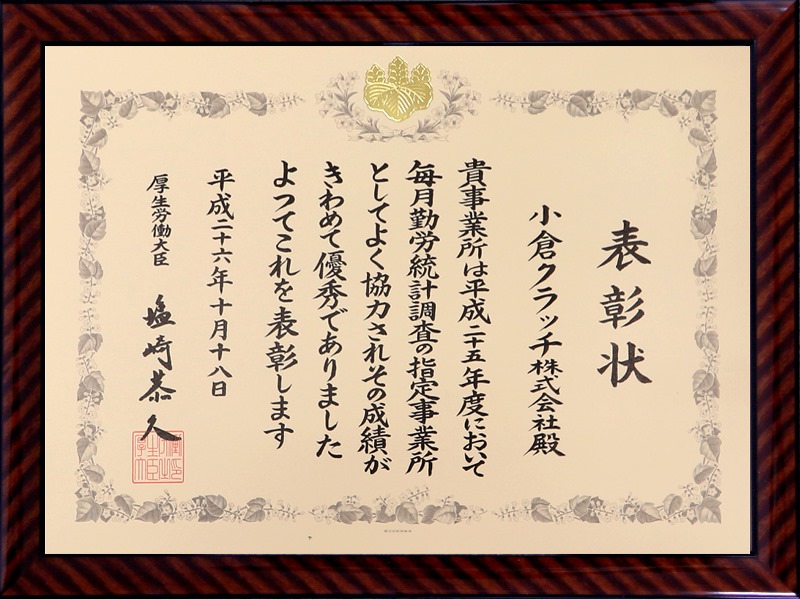 表彰状
小倉クラッチ株式会社殿
貴事業所は平成二十五年度において
毎月勤労統計調査の指定事業所
としてよく協力されその成績が
きわめて優秀でありました
よつてこれを表彰します
平成二十六年十月十八日
厚生労働大臣 塩崎恭久